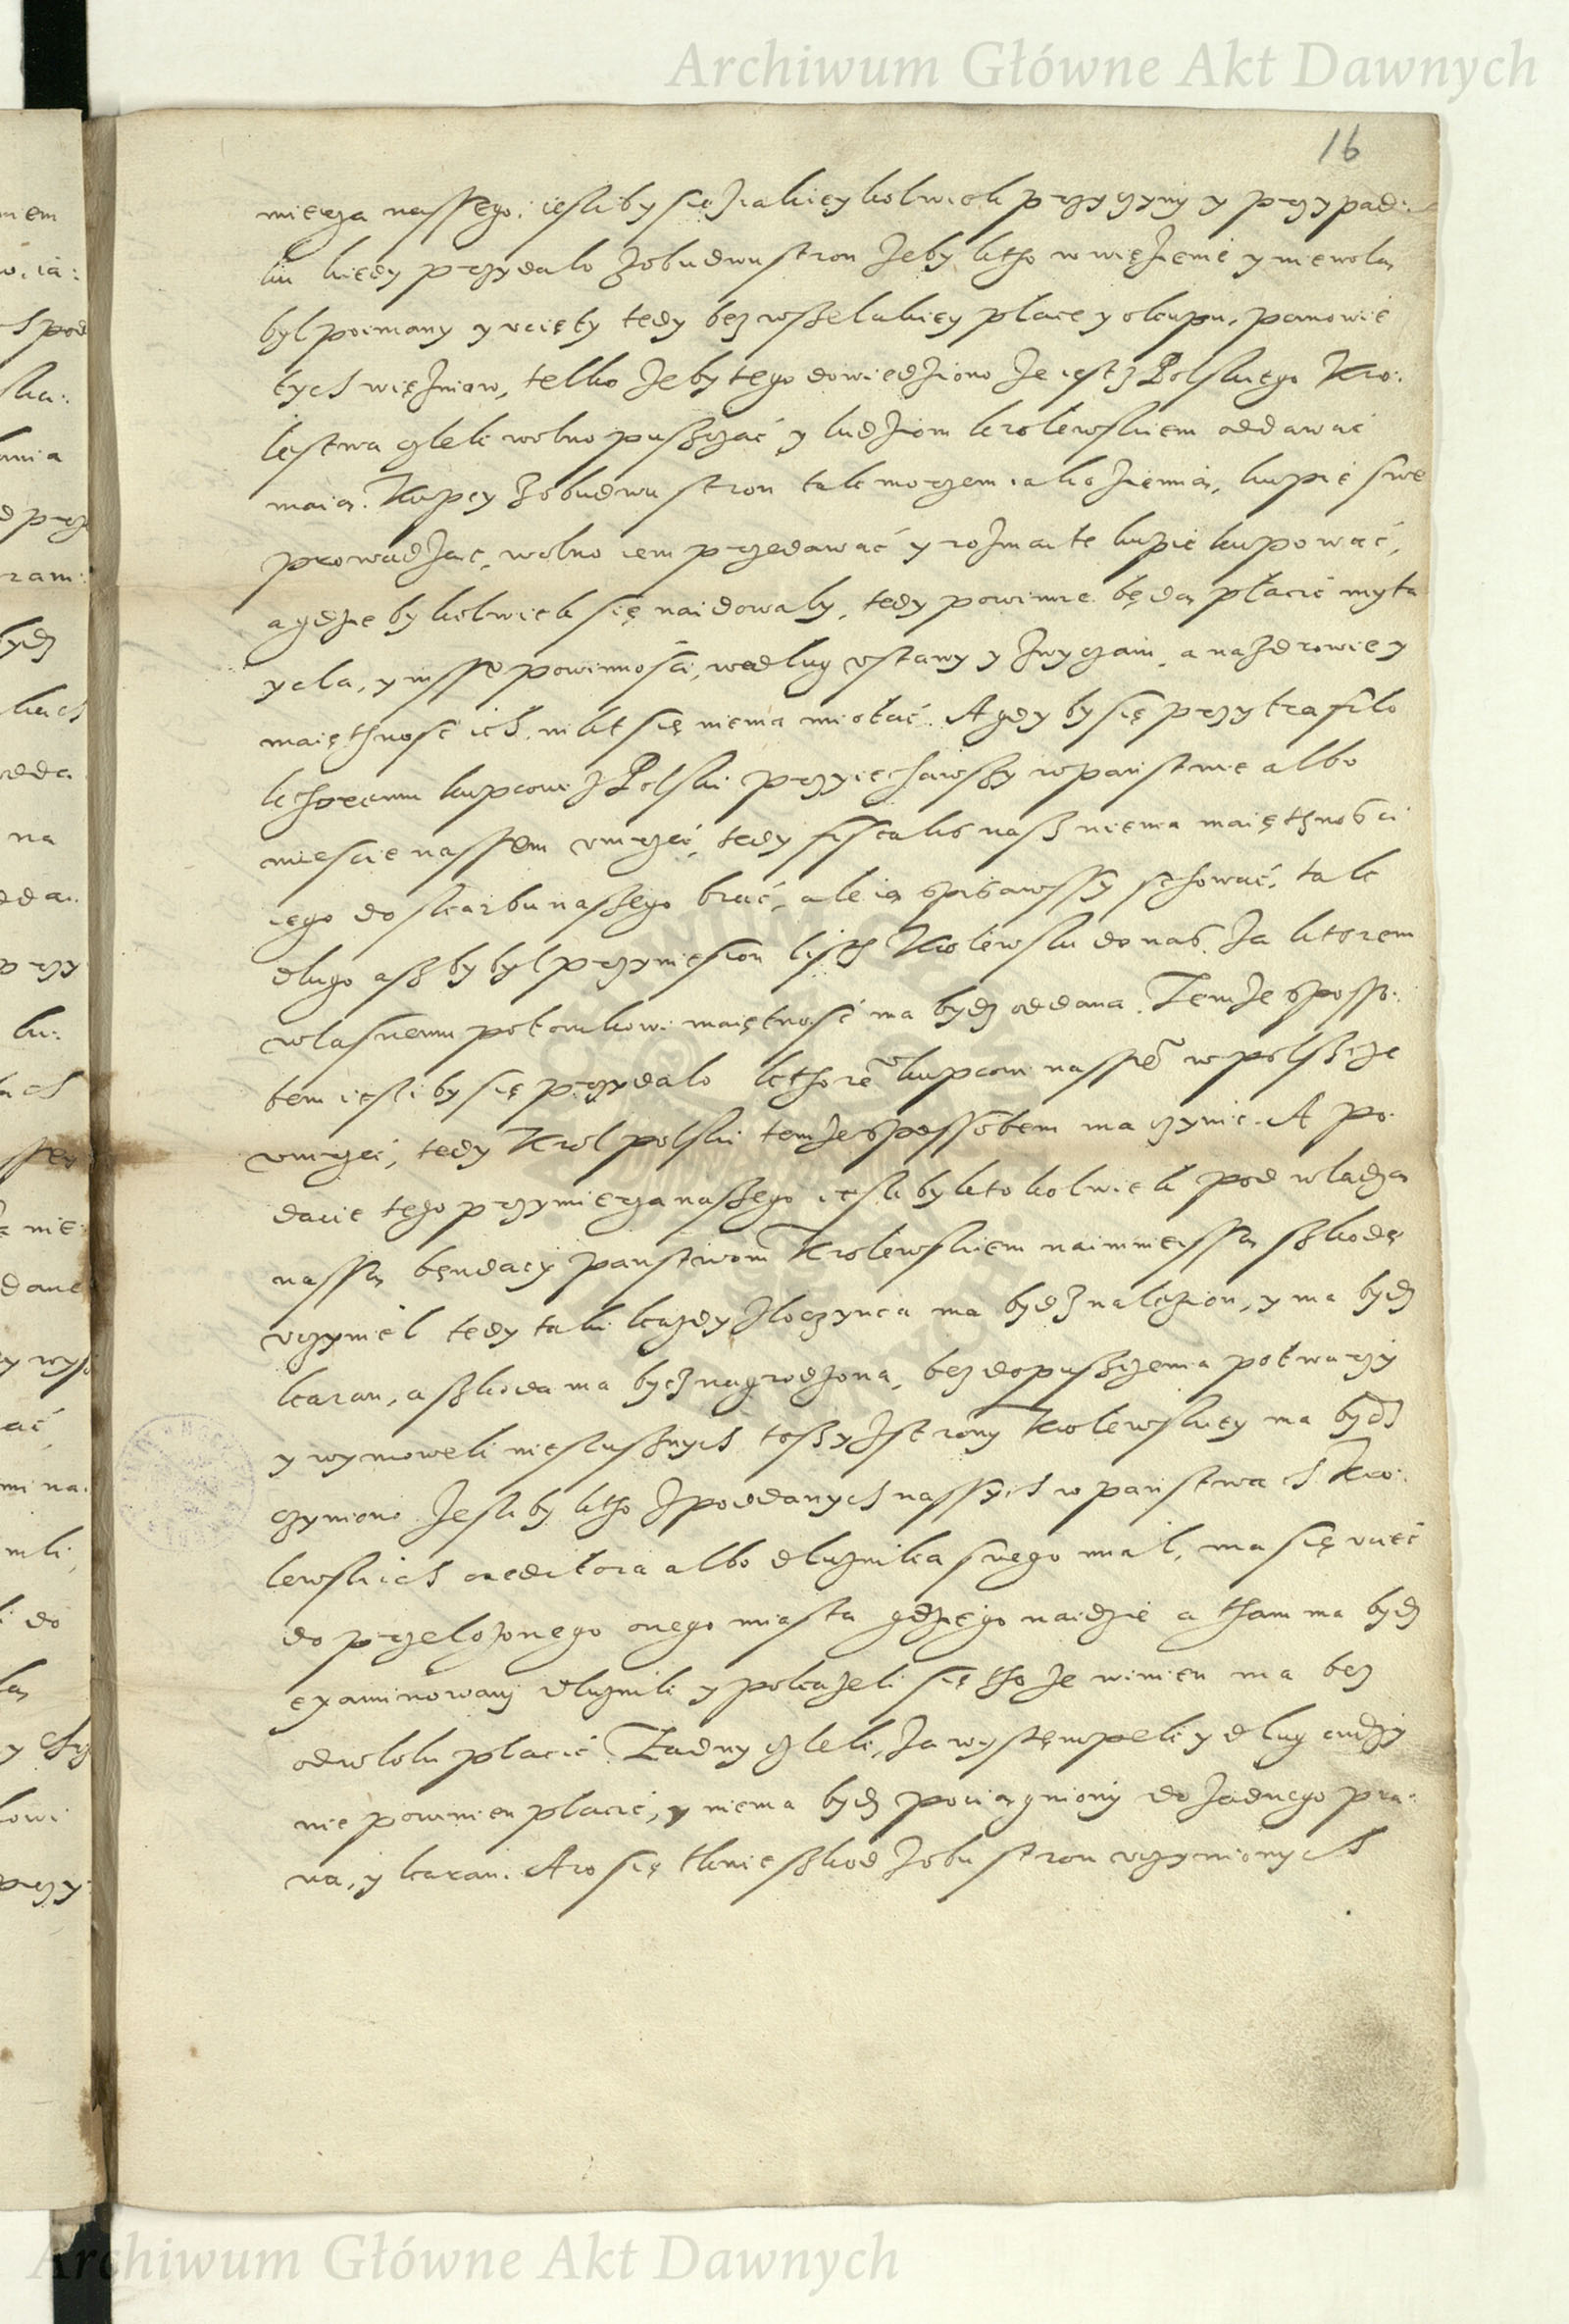 Archiwum Główne Akt Dawnych
16
mierza nassego: iesliby się z iakiey kolwiek przyczyny y przypad:
ku kiedy przydało z obudwu stron zeby ktho w więzienie y niewolą
był poimany y wzięty tedy bez wszelakiey płace y okupu, panowie
tych więzniow, telko zeby tego dowiedziono ze iest z Polskiego Kro:
lestwa człek wolno puszczać y ludziom krolewskiem oddawać
maią. Kupcy z obudwu stron tak morzem iako ziemią, kupie swe
prowadząc, wolno iem przedawać y rozmaite kupie kupować,
a gdzie by kolwiek się naidowały, tedy powinne będą płacić myta
y cla, y insse powinnosci, według vstawy y zwyczaiu, a na zdrowie y
maięthnosć ich, nikt się niema miotać. A gdy by się przytrafiło
kthoremu kupcowi z Polski przyiechawszy w panstwie albo
miescie nassem vmrzeć, tedy fiscalis nasz niema maięthnosci
iego do skarbu naszego brać, ale ią spisawssy schować, tak
długo asz by był przyniesion listh Krolewski do nas, za ktorem
własnemu potomkowi maiętnosć ma bydz oddana. Temze sposso:
bem iesli by się przydało kthorem kupcom nassem w polszcze
vmrzeć, tedy Krol polski temze spossobem ma czynić. A po
dacie tego przymierza naszego iesli by kto kolwiek pod władzą
nassą będący panstwom Krolewskiem naimnieyssą szkodę
vczynieł tedy taki kazdy złoczynca ma bydz nalezion, y ma bydz
karan, a szkoda ma bydz nagrodzona, bez dopuszczenia potwarzy
y wymowek niesłusznych tosz y z strony Krolewskiey ma bydz
czyniono. Jesli by ktho z poddanych nassych w panstwach Kro:
lewskich creditora albo dłuznika swego miał, ma się vciec
do przełozonego onego miasta gdzie go naidzie a tham ma bydz
examinowany dłuznik y pokazeli się tho ze winien ma bez
odwloku płacić. Zadny człek, za występek y dług cudzy
nie powinien płacić, y niema bydz pociągniony do zadnego pra:
wa, y karan. A co się tknie szkod z obu stron vczynionych
Archiwum Główne Akt Dawnych